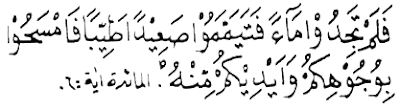 فَلَمْ تَجِدُوْا مَآءً فَتَيَمَّمُوْا صَعِيْدًا طَيِّبًا فَامْسَحُوْا
بِوُجُوْهِكُمْ وَاَيْدِيْكُمْ مِّنْهُ. المائدة اية: ٦.